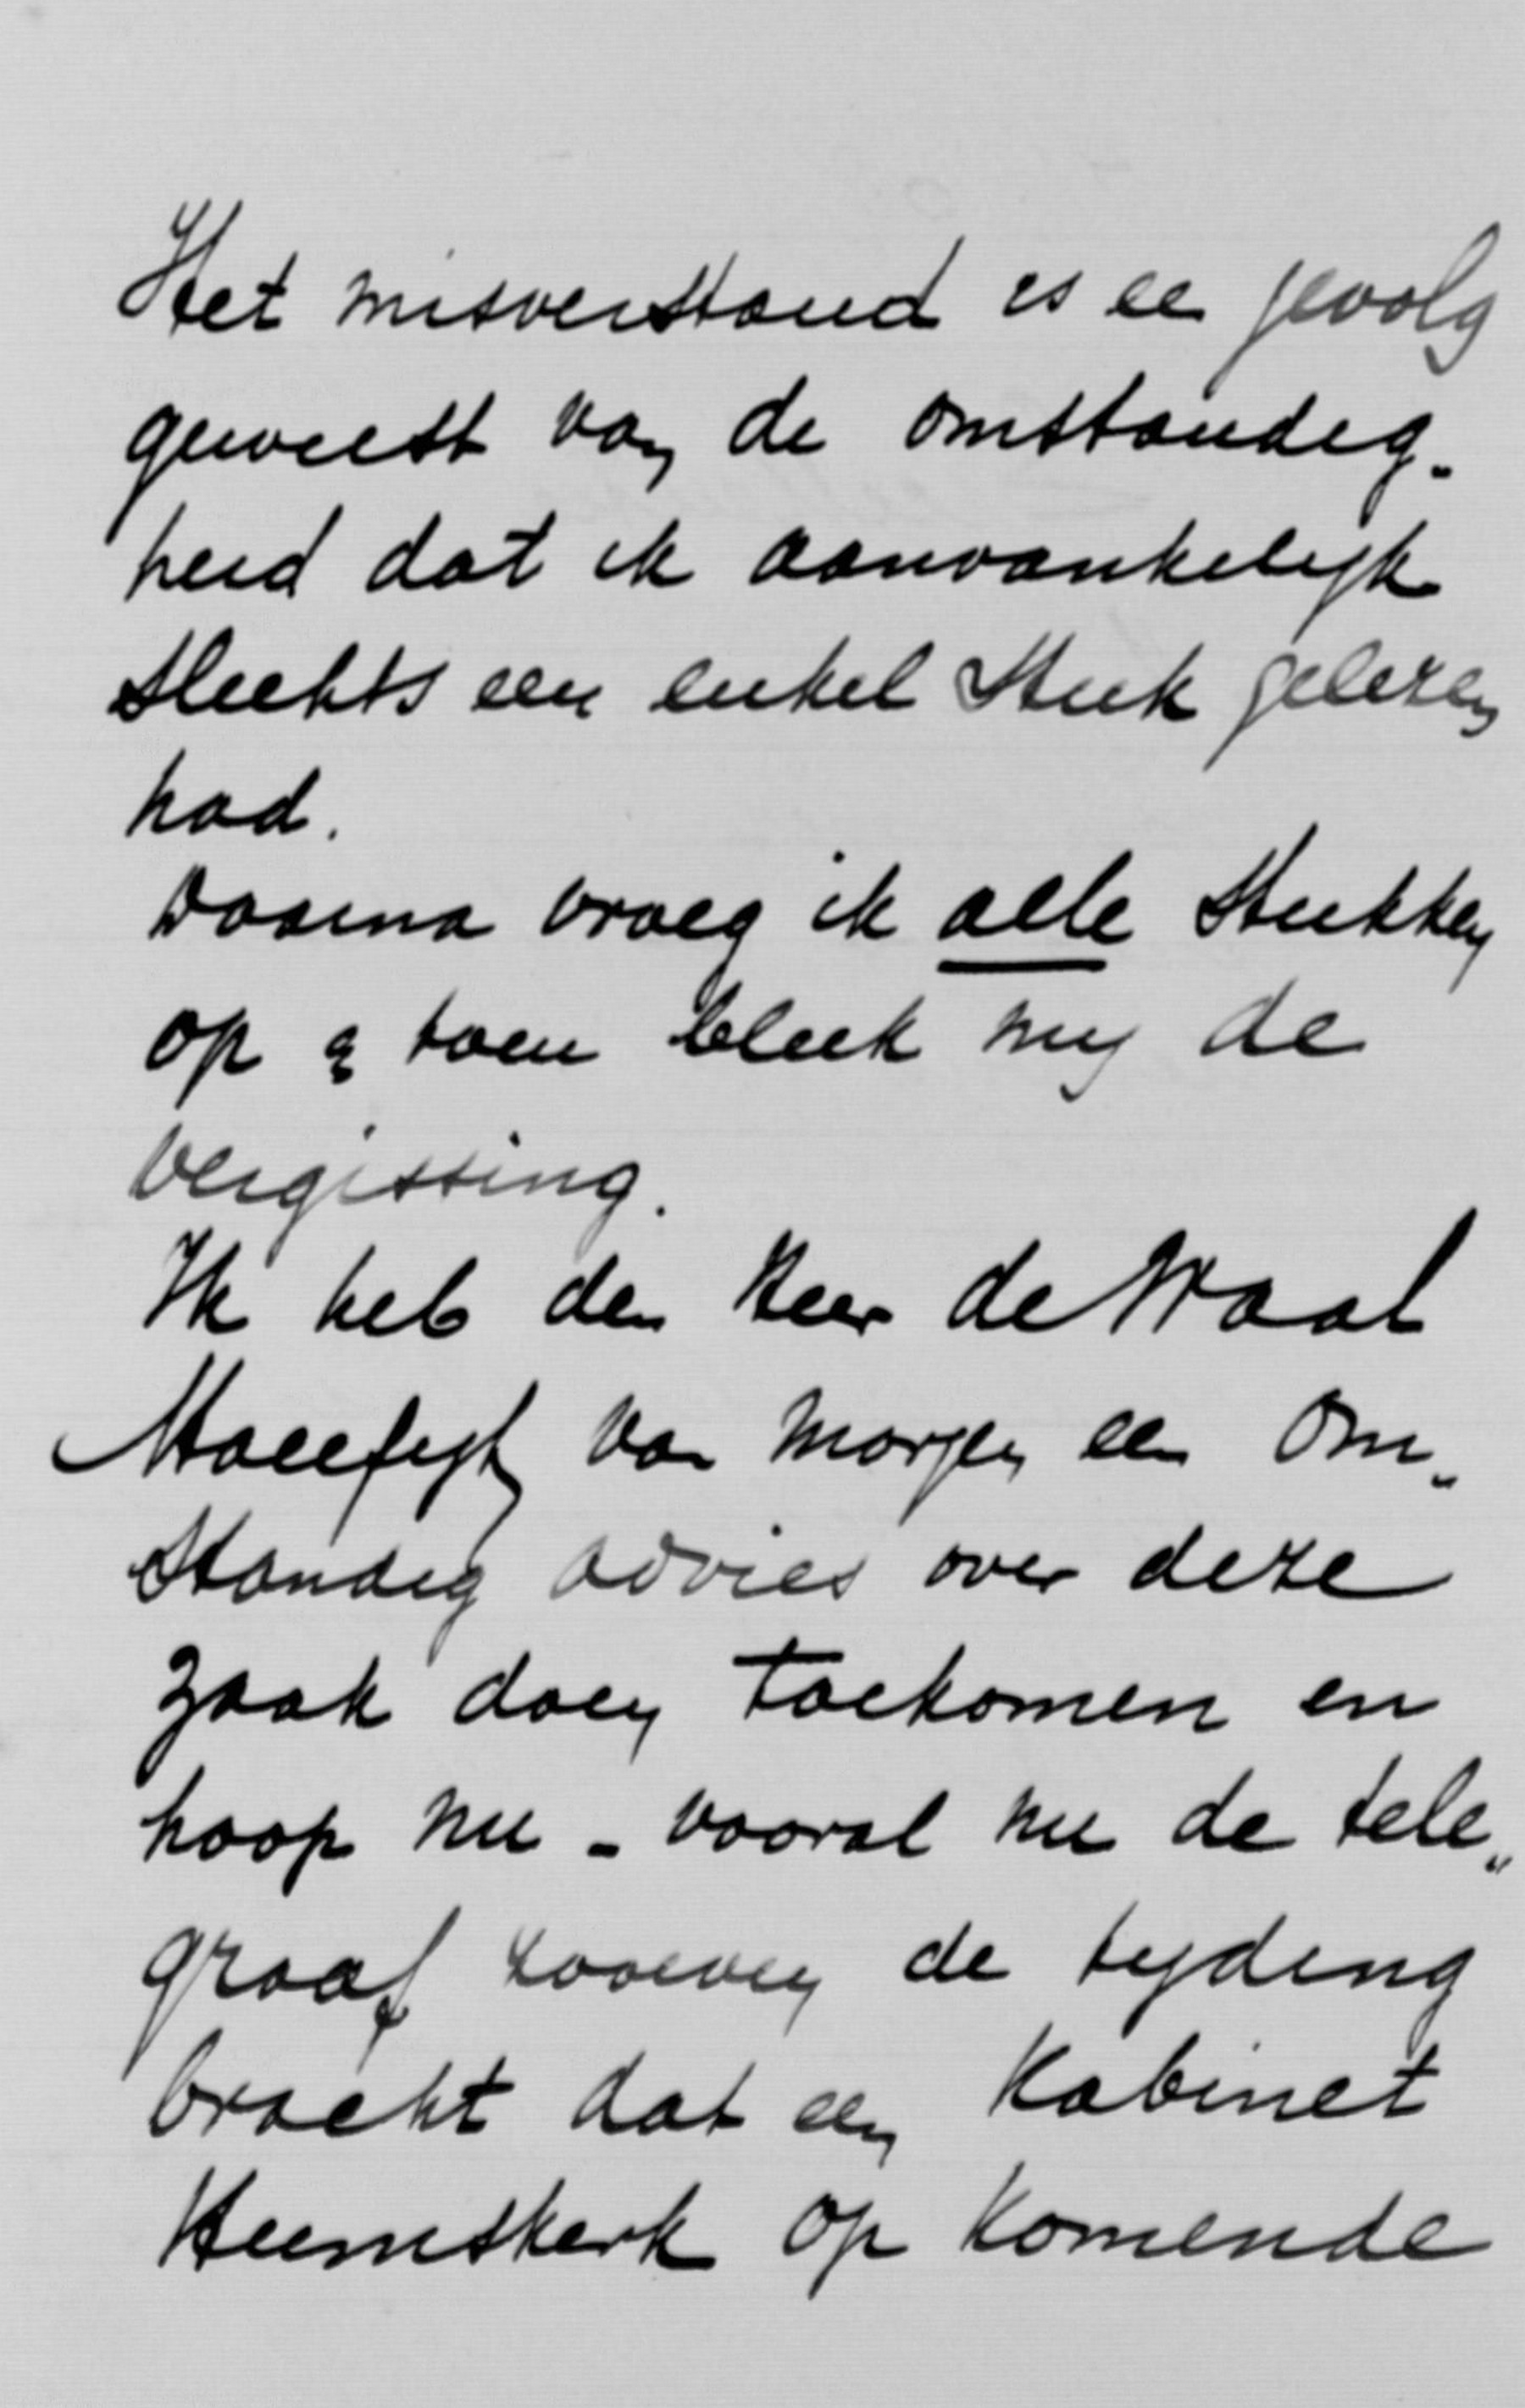 Het misverstand is een gevolg
geweest van de omstandig-
heid dat ik aanvankelijk
slechts een enkel stuk gelezen
had.
Daarna vroeg ik alle stukken
op & toen bleek mij de
vergissing.
Ik heb den Heer de Waal
Malefijt van morgen een om-
standig advies over deze
zaak doen toekomen en
hoop nu - vooral nu de tele-
graaf zooeven de tijding
bracht dat een Kabinet
Heemskerk op komende